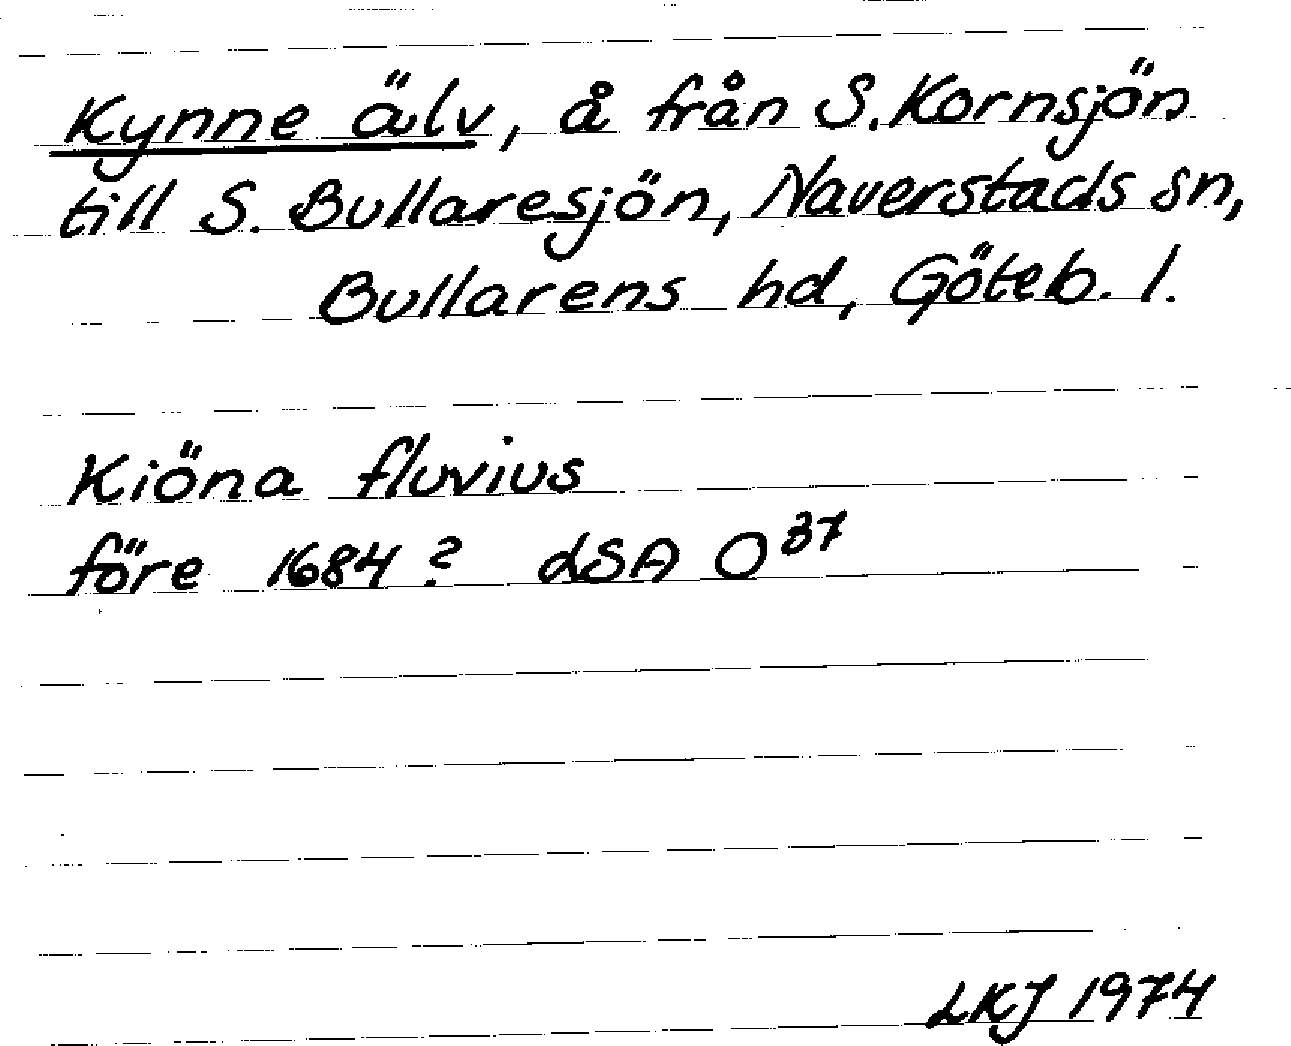 Kynne älv, å från S. Kornsjön
till S. Bullaresjön, Naverstads sn,
Bullarens hd, Göteb. l.
Kiöna fluvius
före 1684? LSA O³⁷
LKJ 1974